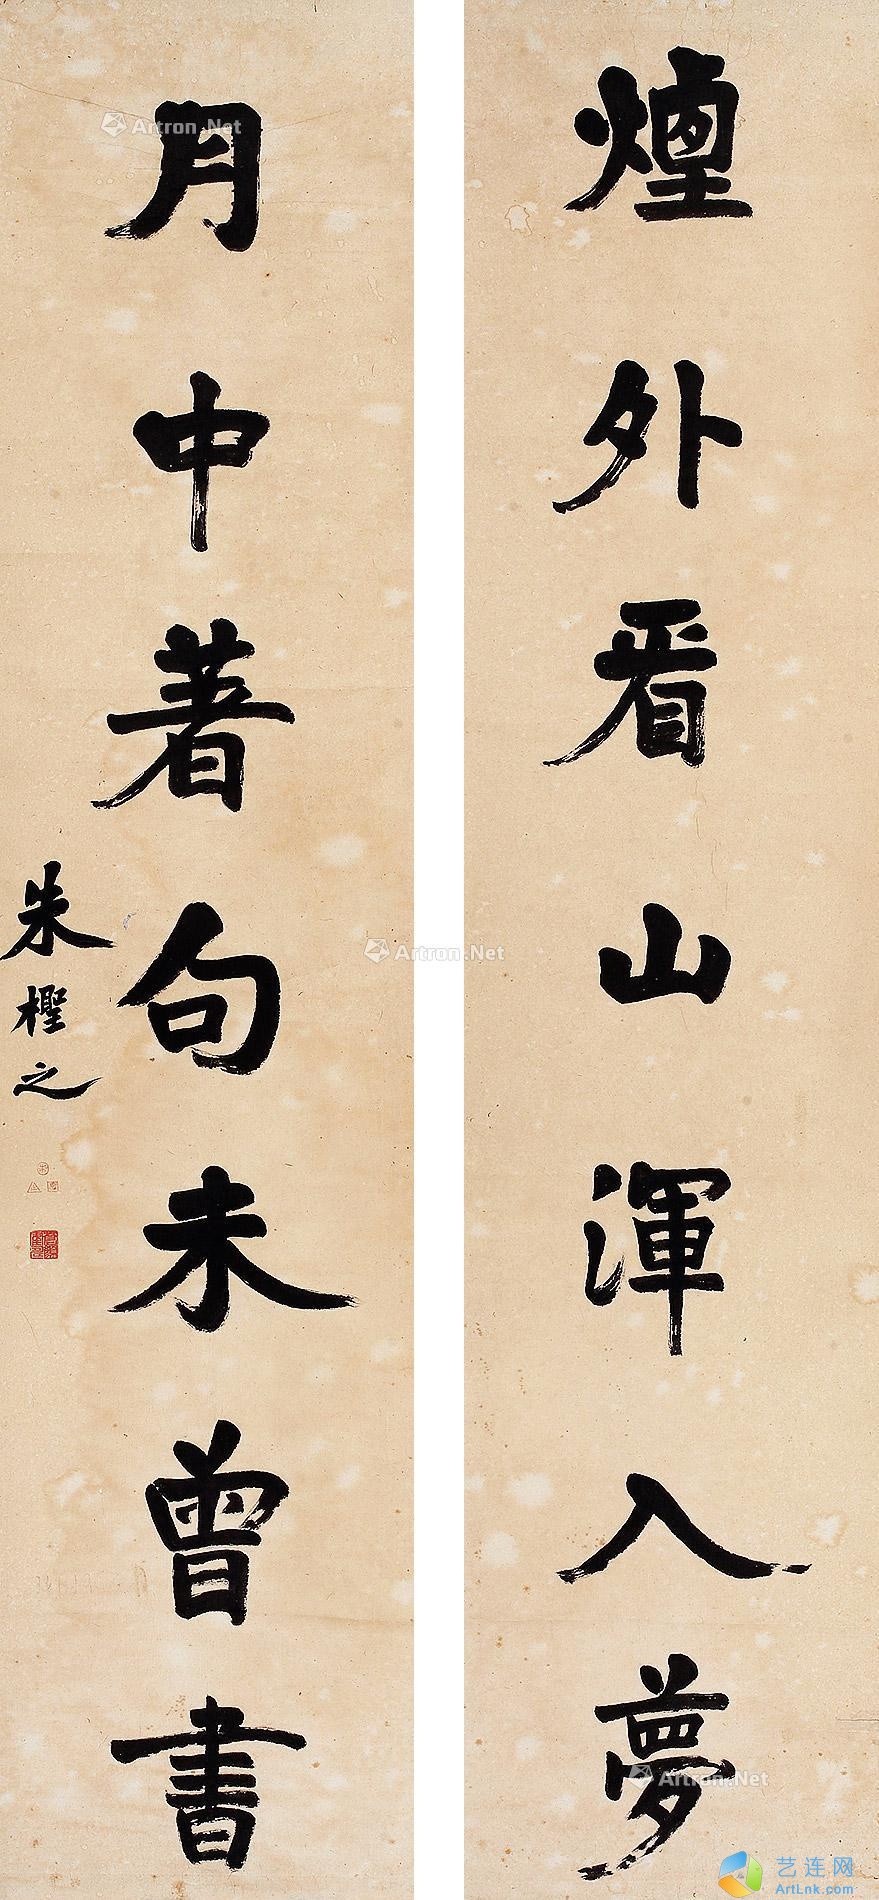 煙外看山渾入夢
月中著句未曾書
朱檉之
Artron.Net
Artron.Net
Artron.Net
艺连网
ArtLnk.com